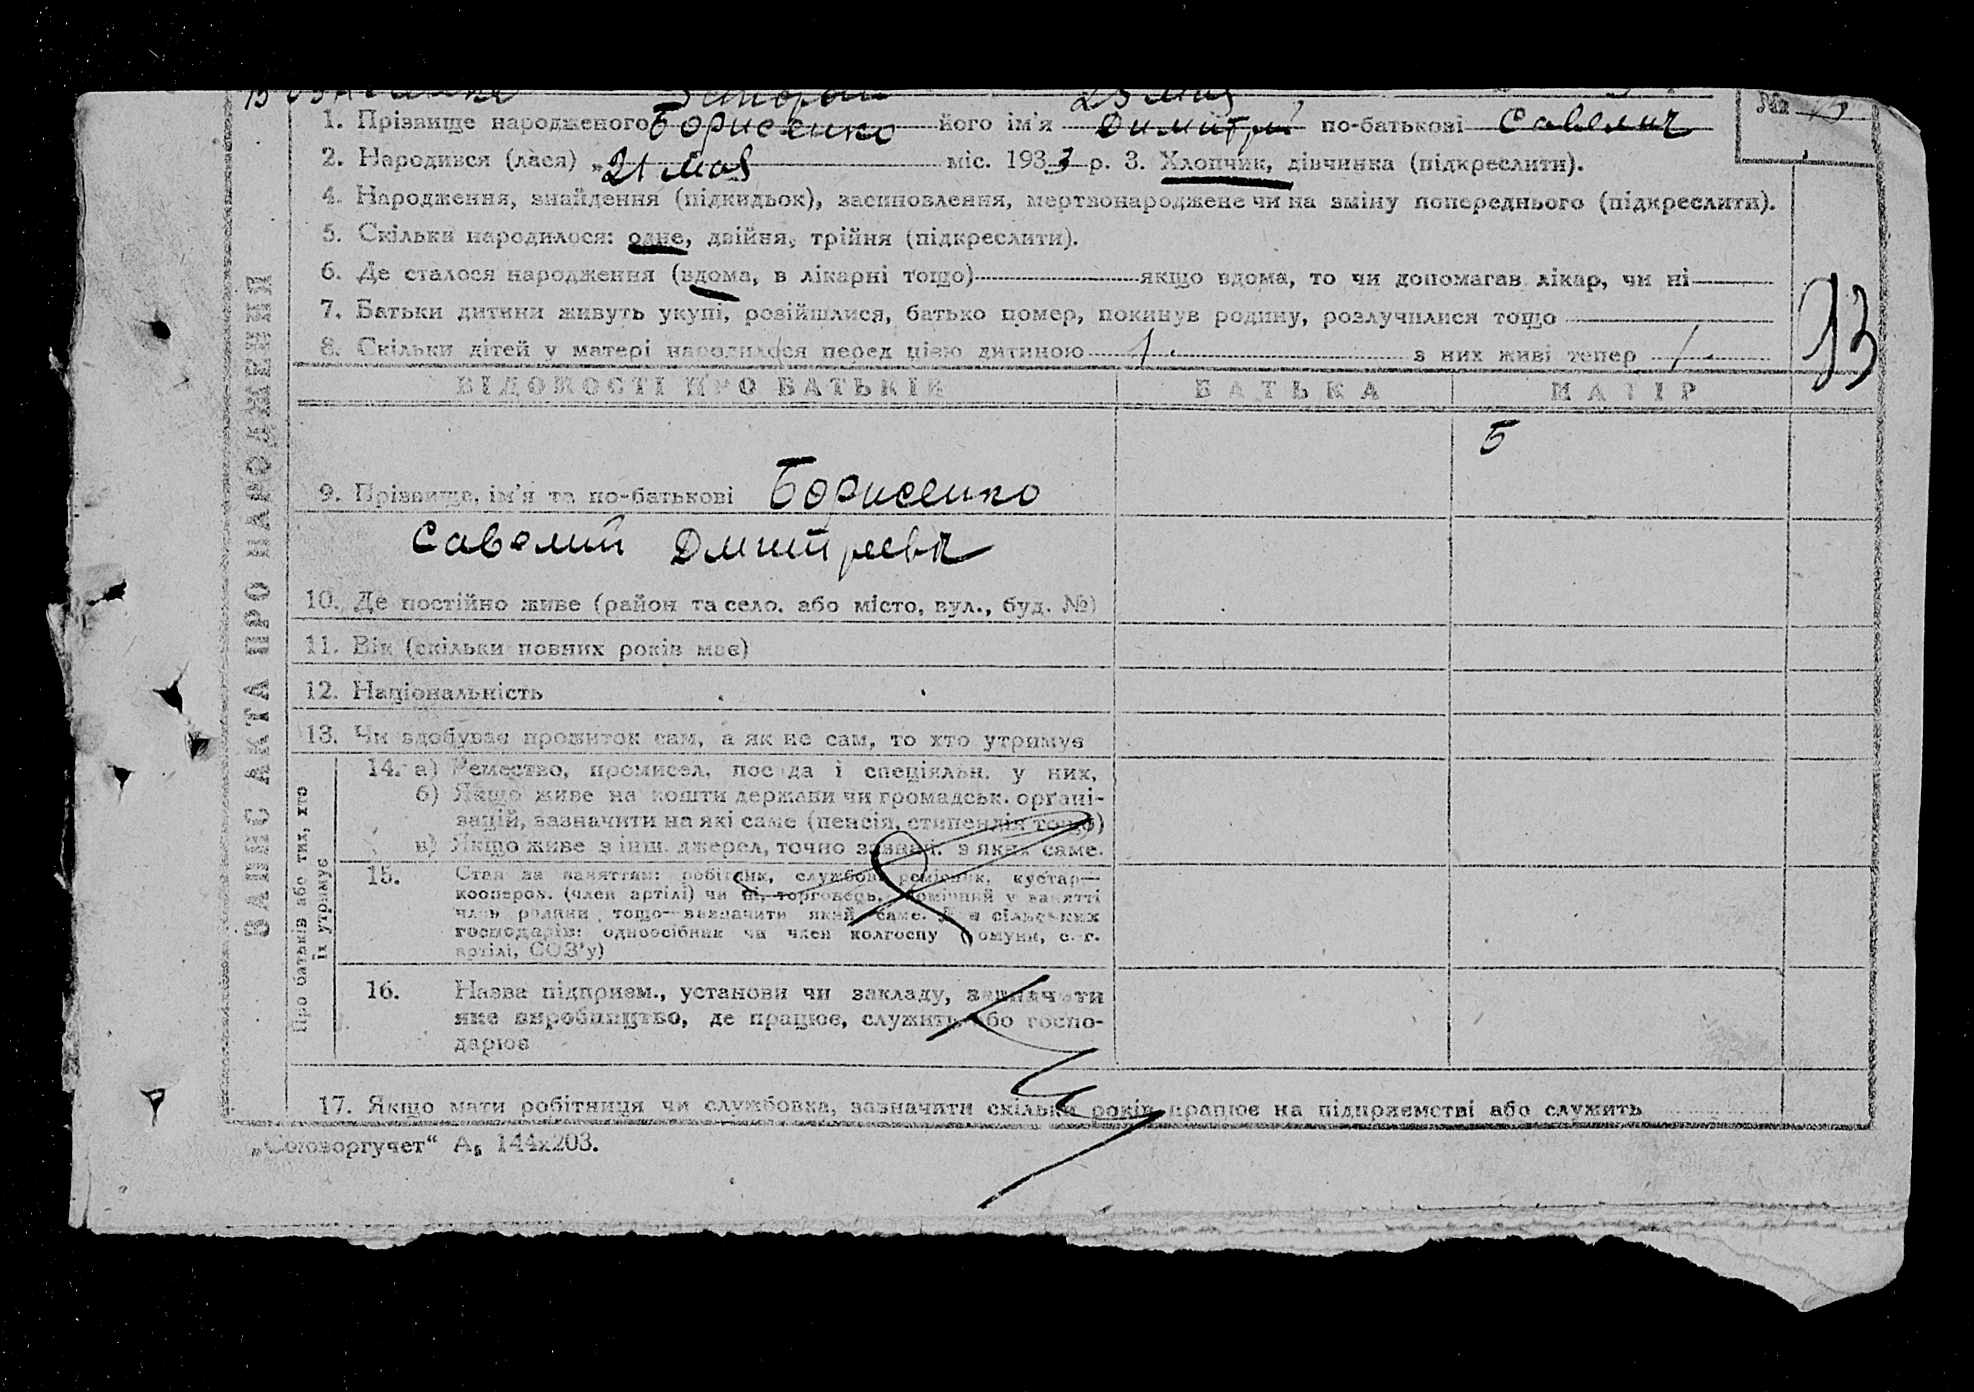 23 мая
№
1. Прізвище народженого Борисенко його ім'я Дмитрий по-батькові Савелич
2. Народився (лася) „21 мая міс. 1933 р. 3. Хлопчик, дівчинка (підкреслити).
4. Народження, знайдення (підкидьок), засиновлення, мертвонароджене чи на зміну попереднього (підкреслити).
5. Скільки народилося: одне, двійня, трійня (підкреслити).
6. Де сталося народження (вдома, в лікарні тощо) якщо вдома, то чи допомагав лікар, чи ні
7. Батьки дитини живуть укупі, розійшлися, батько помер, покинув родину, розлучилися тощо
8. Скільки дітей у матері народилося перед цією дитиною 1 з них живі тепер 1
33
ВІДОМОСТІ ПРО БАТЬКІВ БАТЬКА МАТІР
Б
9. Прізвище, ім'я та по-батькові Борисенко
Савелий Дмитреевич
10. Де постійно живе (район та село, або місто, вул., буд. №)
11. Вік (скільки повних років має)
12. Національність
13. Чи здобуває прожиток сам, а як не сам, то хто утримує
Про батьків або тих, хто їх утримує
14. а) Ремество, промисел, посада і спеціяльн. у них,
б) Якщо живе на кошти держави чи громадськ. органі-
зацій, зазначити на які саме (пенсія, стипендія тощо)
в) Якщо живе з інш. джерел, точно зазнач. з яких саме.
15. Стан за заняттям: робітник, службов. ремісник, кустар—
кооперов. (член артілі) чи ні, торговець, помічний у занятті
член родини тощо—зазначити який саме. Для сільських
господарів: одноосібник чи член колгоспу комуни, с.-г.
артілі, СОЗ'у)
16. Назва підприєм., установи чи закладу, зазначити
яке виробництво, де працює, служить або госпо-
дарює
17. Якщо мати робітниця чи службовка, зазначити скільки років працює на підприємстві або служить
ЗАПИС АКТА ПРО НАРОДЖЕННЯ
„Союзоргучет“ А₅ 144х203.